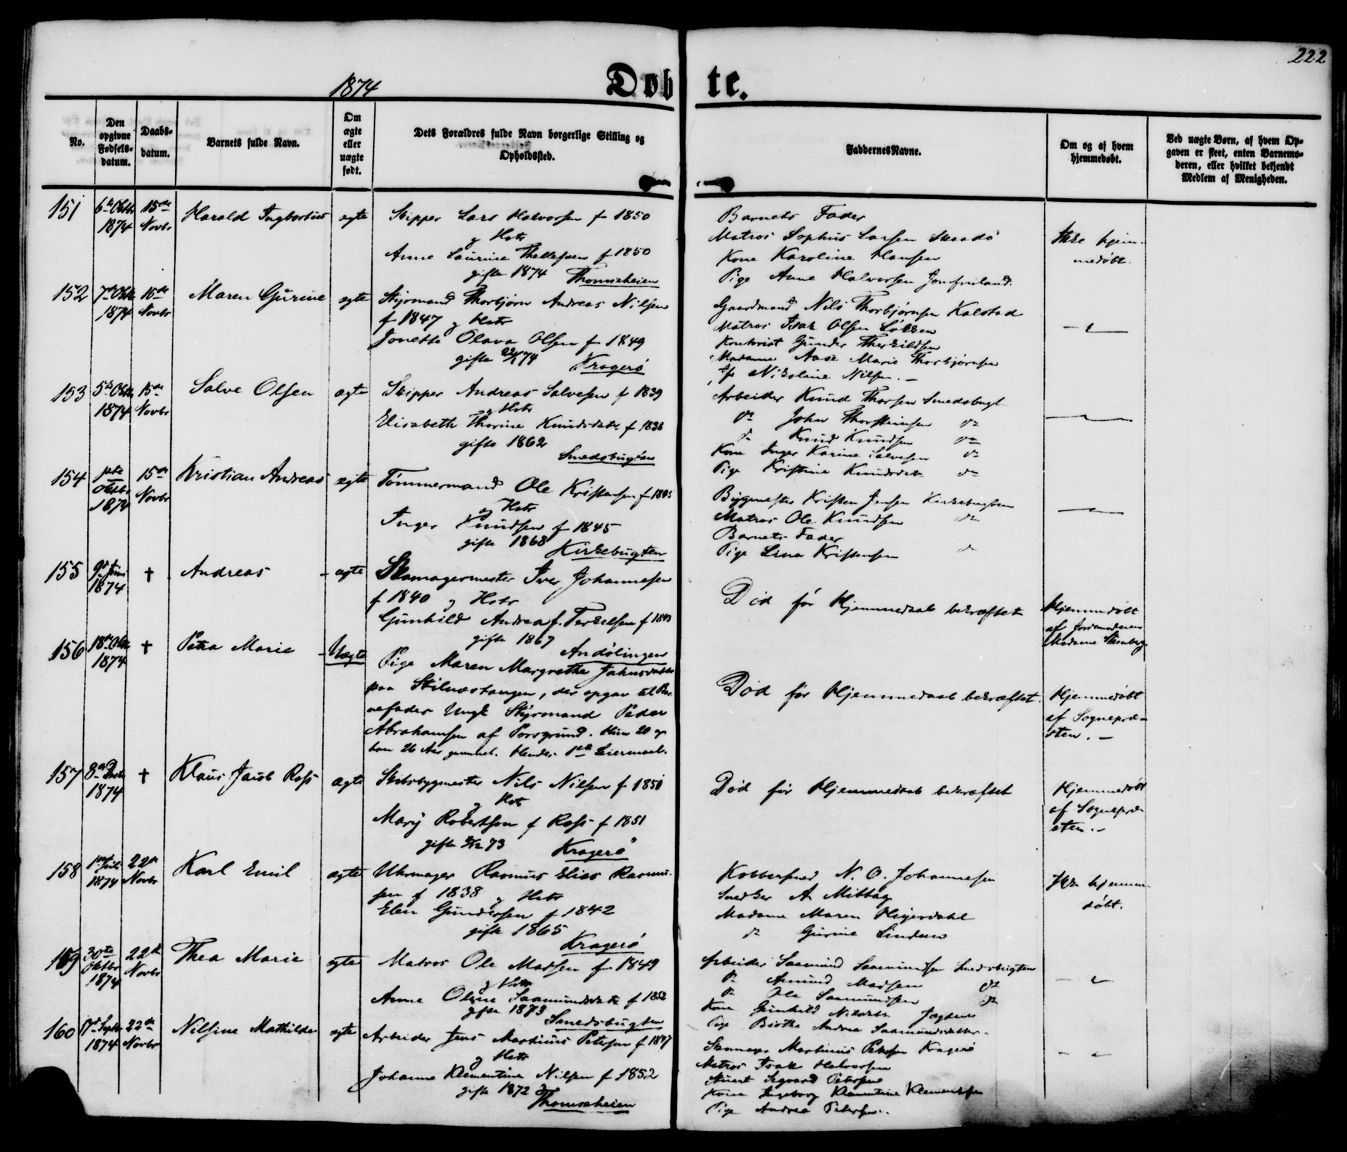 222
1874
Døbte.
No.
Den opgivne Fødsels-datum.
Daabs-datum.
Barnets fulde Navn.
Om ægte eller uægte født.
Dets Forældres fulde Navn borgerlige Stilling og Opholdssted.
Faddernes Navne.
Om og af hvem hjemmedøbt.
Ved uægte Børn, af hvem Opgaven er skeet, enten Barnemoderen, eller hvilket bekjendt Medlem af Menigheden.
151 6te Oktbr 1874 15de Novbr Harald Ingbortius ægte
Skipper Lars Halvorsen f 1850
og Hstr
Anne Laurine Thellefsen f 1850
gift 1874 Thomesheien
Barnets Fader
Matros Sophus Larsen
Kone Karoline Hansen
Pige Anne Halvorsen Jomfruland
Ikke hjem-
medøbt.
152 7de Oktbr 1874 15de Novbr Maren Gurine ægte
Styrmand Thorbjørn Andreas Nilsen
f 1847 og Hstr
Jonette Olava Olsen f 1849
gift 74 Kragerø
Gaardmand Nils Thorbjørnsen Kalstad
Matros Isak Olsen Løkken
Kontorist Gunder Therkildsen
Madame Aase Marie Thorbjørnsen
Nikoline Nilsen. -
153 5te Oktbr 1874 15de Novbr Salve Olsen ægte
Skipper Andreas Salvesen f 1839
og Hstr
Elisabeth Thorine Knudsdatr f 1838
gift 1862
Smedsbugten
Arbeider Knud Thorsen Smedsbugt
do John Thorsteinsen do
do Knud Knudsen do
Kone Inger Karine Salvesen do
Pige Kristine Knudsdatr do
154 1ste Oktbr 1874 15de Novbr Kristian Andreas ægte
Tømmermand Ole Kristensen f
og Hstr
Inger Knudsen f 1845
gift 1868 Kirkebugten
Bygmester Kristen Jensen Kirkebugten
Matros Ole Knudsen do
Barnets Fader
Pige Lena Kristensen do
155 9de Juni 1874 † Andreas ægte
Skomagermester Iver Johannesen
f 1840 og Hstr
Gunhild Andrea f. Terkelsen f 1843
gift 1867
Andølingen
Død før Hjemmedaab bekræftet
Hjemmedøbt
af Jordmoderen
Madame Stenberg
156 18de Oktbr 1874 † Petra Marie Uægte
Pige Maren Margrethe Jahnsdatter
paa Stilnestangen, der opgav til Bar-
nefader Ungk Styrmand Peder
Abrahamsen af Porsgrund. Hun 20 og
han 26 Aar gammel. Hendes 1ste Leiermaal.
Død før Hjemmedaab bekræftet.
Hjemmedøbt
af Sognepræ-
sten. -
157 8de 1874 † Klaus Jacob Ross ægte
Skibsbygmester Nils Nilsen f 1851
og Hstr
Mary Robertson f Ross f 1851
gift 73 Kragerø
Død før Hjemmedaab bekræftet
Hjemmedøbt
af Sognepræ-
sten. -
158 1874 22de Novbr Karl Emil ægte
Uhrmager Rasmus Elias Rasmus-
sen f 1838 og Hstr
Elen Gundersen f 1842
gift 1865
Kragerø
Kobbersmed N. O. Johannesen
Snedker A Mittag
Madame Maren Heyerdahl
do Gurine Lindem
Ikke hjemme-
døbt.
159 30te Oktbr 1874 22de Novbr Thea Marie ægte
Matros Ole Madsen f 1849
og Hstr
Anne Oline Saamundsdatr f 1852
gift 1873
Smedsbugten
Arbeider Saamund Saamundsen Smedsbugten
do Amund Madsen do
do Ole Saamundsen do
Kone Gunhild
Pige Birthe Andrea Saamundsdatter.
160 17de Septbr 1874 22de Novbr Nilsine Mathilde ægte
Arbeider Jens Martinius Petersen f 1847
og Hstr
Johanne Klementine Nilsen f 1852
gift 1872
Thomesheien
Skomager Martinius Petersen Kragerø
Matros Isak Halvorsen
Petersen
Kone Ingeborg Klementine Klementsen
Pige Andrea Petersen.